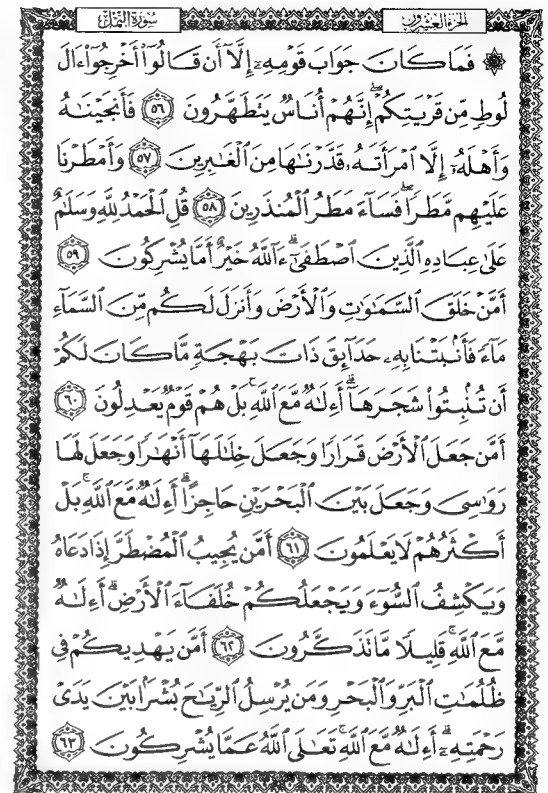 الجزء العشرون سورة النمل
۞ فَمَا كَانَ جَوَابَ قَوْمِهِۦٓ إِلَّآ أَن قَالُوٓا۟ أَخْرِجُوٓا۟ ءَالَ
لُوطٍ مِّن قَرْيَتِكُمْ ۖ إِنَّهُمْ أُنَاسٌ يَتَطَهَّرُونَ ٥٦ فَأَنجَيْنَٰهُ
وَأَهْلَهُۥٓ إِلَّا ٱمْرَأَتَهُۥ قَدَّرْنَٰهَا مِنَ ٱلْغَٰبِرِينَ ٥٧ وَأَمْطَرْنَا
عَلَيْهِم مَّطَرًا ۖ فَسَآءَ مَطَرُ ٱلْمُنذَرِينَ ٥٨ قُلِ ٱلْحَمْدُ لِلَّهِ وَسَلَٰمٌ
عَلَىٰ عِبَادِهِ ٱلَّذِينَ ٱصْطَفَىٰٓ ۗ ءَآللَّهُ خَيْرٌ أَمَّا يُشْرِكُونَ ٥٩
أَمَّنْ خَلَقَ ٱلسَّمَٰوَٰتِ وَٱلْأَرْضَ وَأَنزَلَ لَكُم مِّنَ ٱلسَّمَآءِ
مَآءً فَأَنۢبَتْنَا بِهِۦ حَدَآئِقَ ذَاتَ بَهْجَةٍ مَّا كَانَ لَكُمْ
أَن تُنۢبِتُوا۟ شَجَرَهَآ ۗ أَءِلَٰهٌ مَّعَ ٱللَّهِ ۚ بَلْ هُمْ قَوْمٌ يَعْدِلُونَ ٦٠
أَمَّن جَعَلَ ٱلْأَرْضَ قَرَارًا وَجَعَلَ خِلَٰلَهَآ أَنْهَٰرًا وَجَعَلَ لَهَا
رَوَٰسِىَ وَجَعَلَ بَيْنَ ٱلْبَحْرَيْنِ حَاجِزًا ۗ أَءِلَٰهٌ مَّعَ ٱللَّهِ ۚ بَلْ
أَكْثَرُهُمْ لَا يَعْلَمُونَ ٦١ أَمَّن يُجِيبُ ٱلْمُضْطَرَّ إِذَا دَعَاهُ
وَيَكْشِفُ ٱلسُّوٓءَ وَيَجْعَلُكُمْ خُلَفَآءَ ٱلْأَرْضِ ۗ أَءِلَٰهٌ
مَّعَ ٱللَّهِ ۚ قَلِيلًا مَّا تَذَكَّرُونَ ٦٢ أَمَّن يَهْدِيكُمْ فِى
ظُلُمَٰتِ ٱلْبَرِّ وَٱلْبَحْرِ وَمَن يُرْسِلُ ٱلرِّيَٰحَ بُشْرًۢا بَيْنَ يَدَىْ
رَحْمَتِهِۦٓ ۗ أَءِلَٰهٌ مَّعَ ٱللَّهِ ۚ تَعَٰلَى ٱللَّهُ عَمَّا يُشْرِكُونَ ٦٣